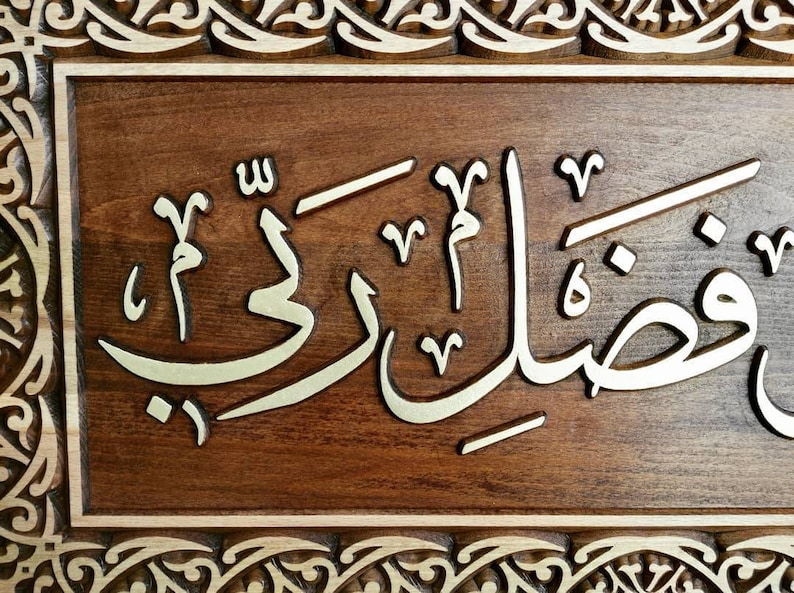 فَضْلِ رَبِّي